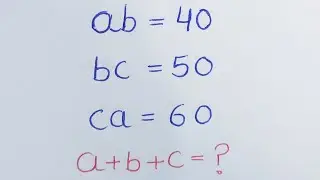 ab = 40
bc = 50
ca = 60
a+b+c = ?